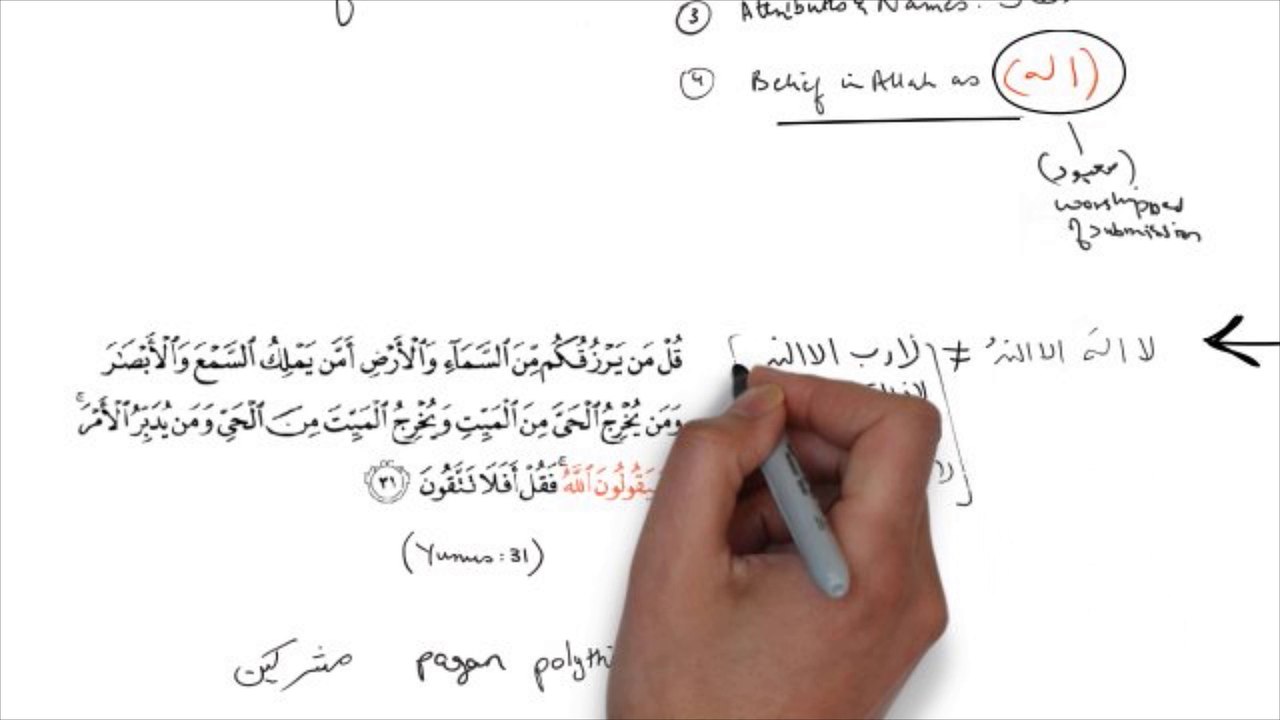 ③ Attributes & Names.
④ Belief in Allah as (اله)
(معبود)
worshipped
& submission
لا اله الا الله ≠ لا رب الا الله
قُلْ مَن يَرْزُقُكُم مِّنَ ٱلسَّمَآءِ وَٱلْأَرْضِ أَمَّن يَمْلِكُ ٱلسَّمْعَ وَٱلْأَبْصَٰرَ
وَمَن يُخْرِجُ ٱلْحَىَّ مِنَ ٱلْمَيِّتِ وَيُخْرِجُ ٱلْمَيِّتَ مِنَ ٱلْحَىِّ وَمَن يُدَبِّرُ ٱلْأَمْرَ ۚ
يَقُولُونَ ٱللَّهُ ۚ فَقُلْ أَفَلَا تَتَّقُونَ ٣١
(Yunus: 31)
مشركين pagan polythi